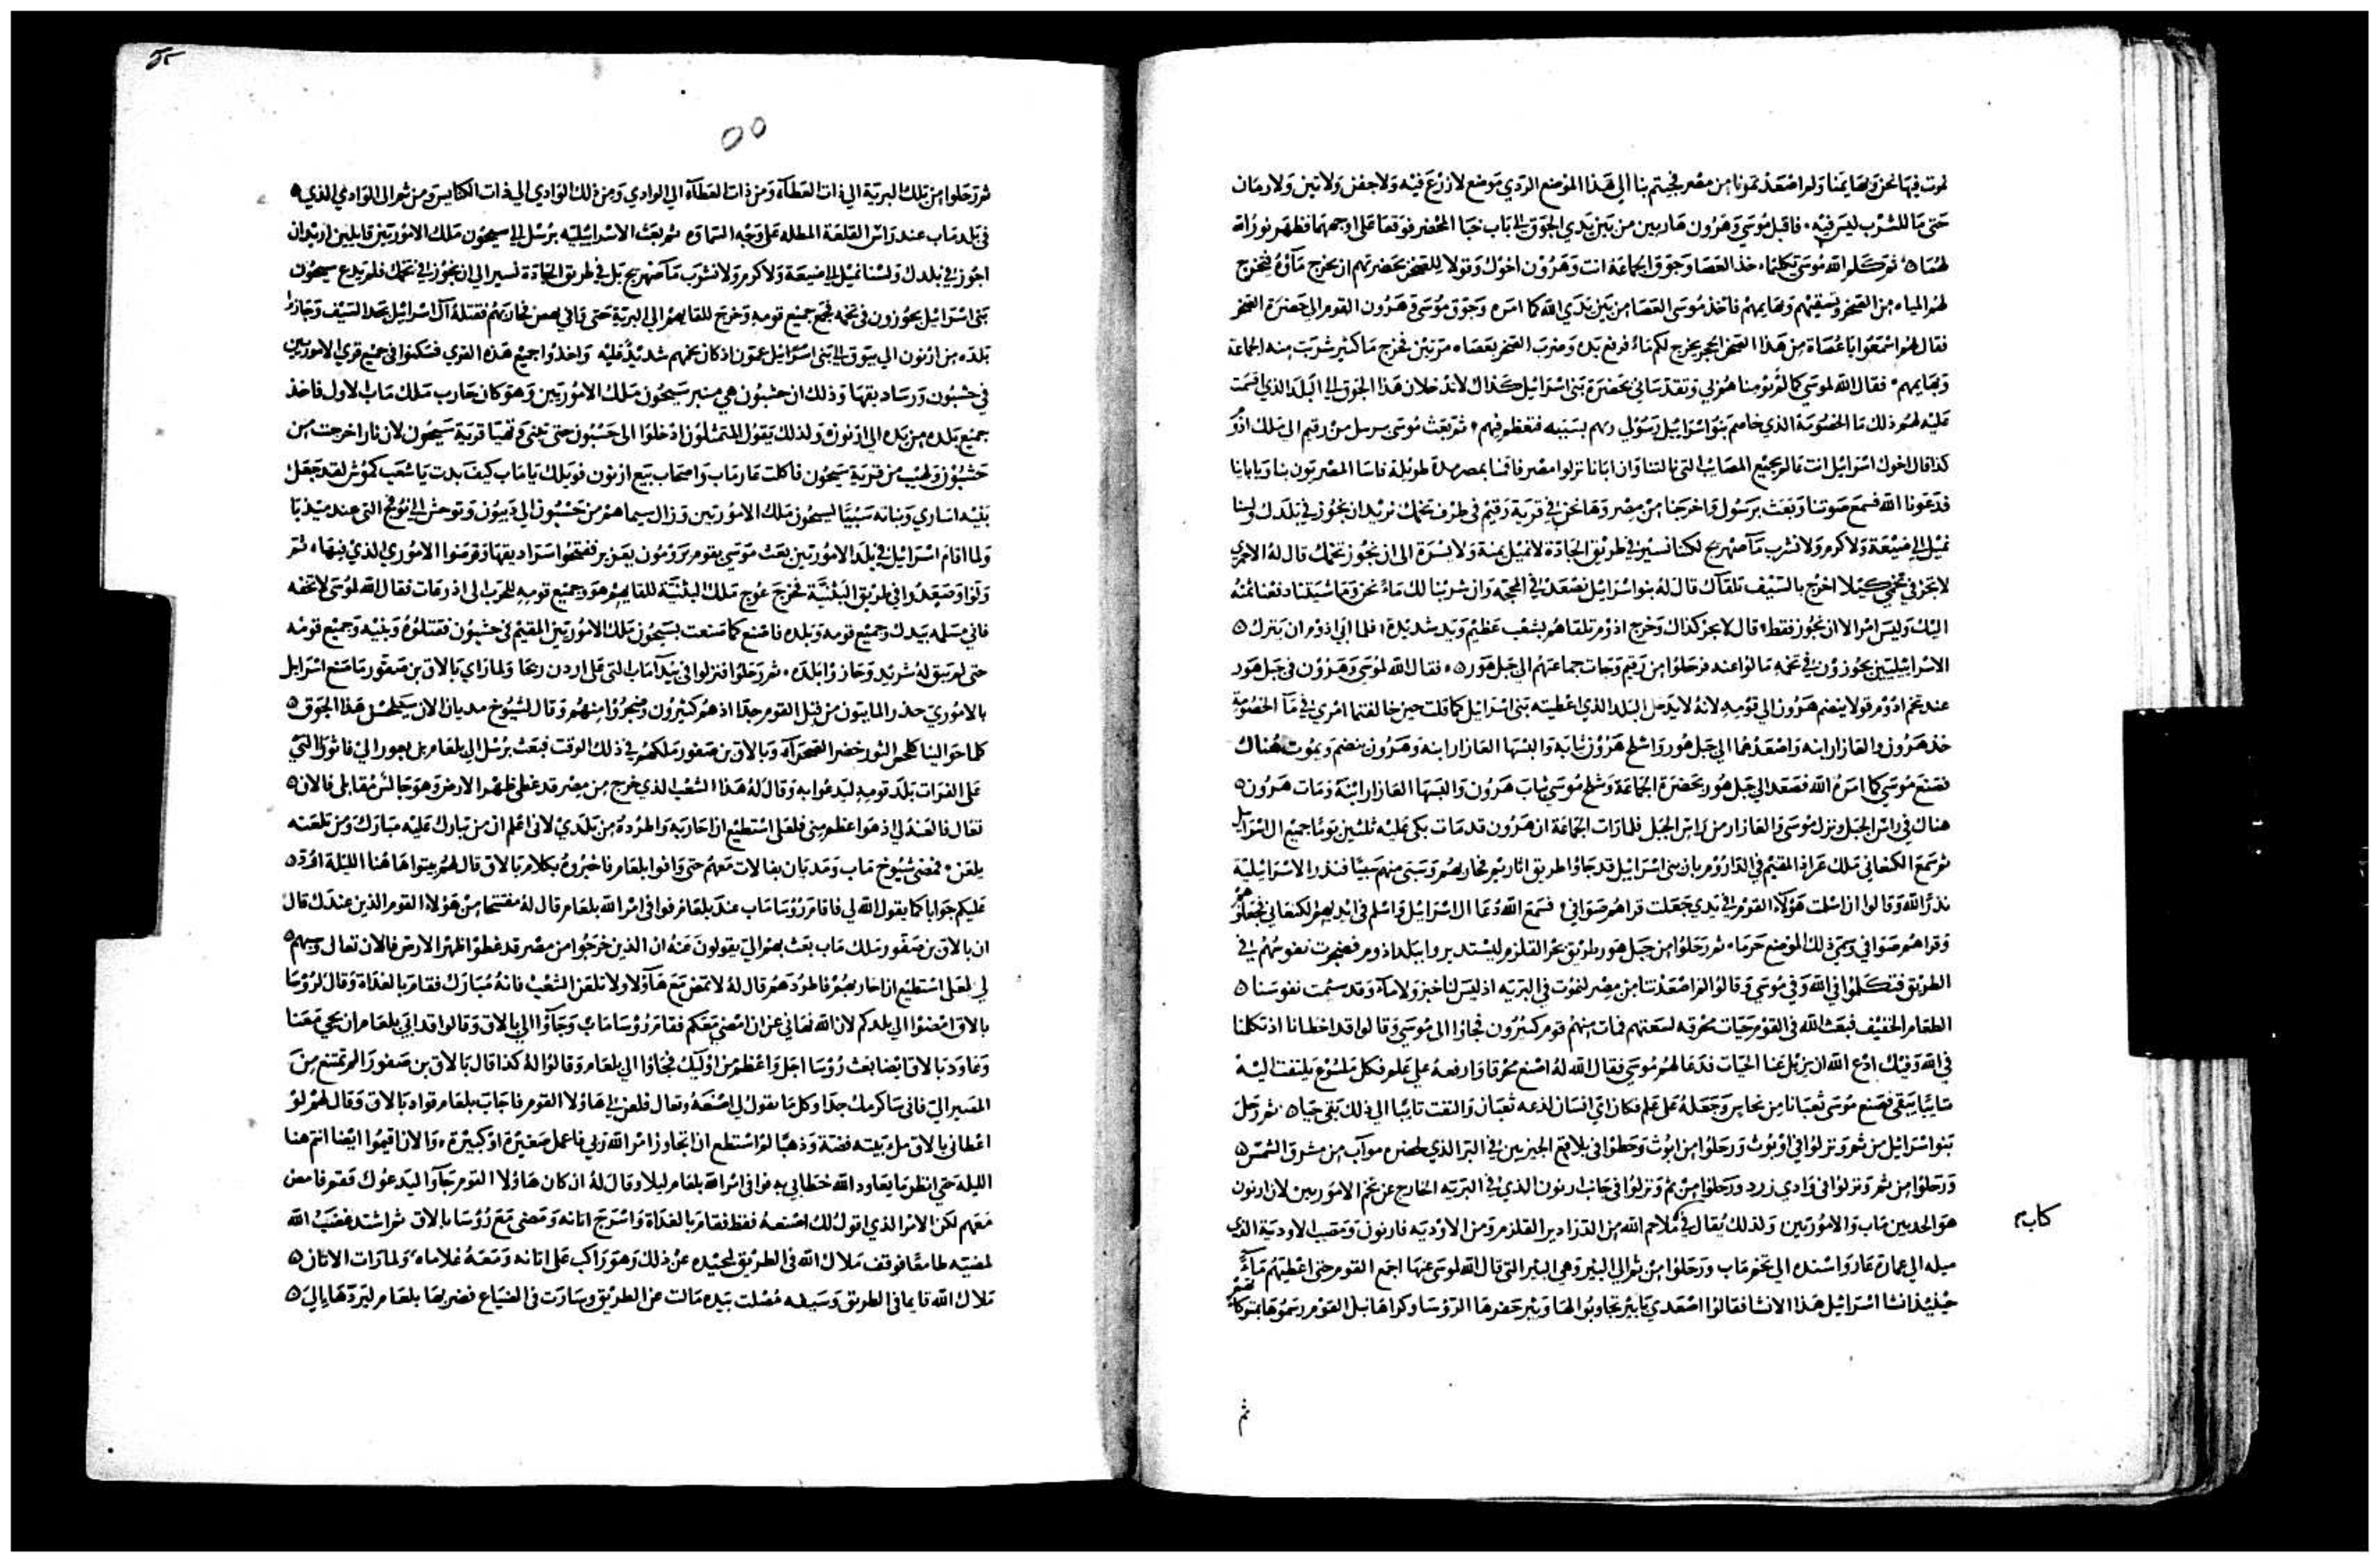 نموت فيها نحن وبهايمنا ولم اصعدتمونا من مصر فجيتم بنا الي هذا الموضع الردي موضع لا زرع فيه ولا جفن ولا تين ولا رمان
حتي ما للشرب ليس فيه فاقبل موسي وهرون هاربين من بين يدي الجوق الي باب خبا المحضر فوقعا علي اوجههما فظهر نور الله
لهما ثم كلم الله موسي تكليما خذ العصا وجوق الجماعة انت وهرون اخوك وقولا للصخر بحضرتهم ان يخرج ماؤه فتخرج
لهم المياه من الصخر وتسقيهم وبهايمهم فاخذ موسي العصا من بين يدي الله كما امره وجوق موسي وهرون القوم الي حضرة الصخر
فقال لهم اسمعوا يا عصاة من هذا الصخر الحجر يخرج لكم ماء فرفع يده وضرب الصخر بعصاه مرتين فخرج ما كثير شربت منه الجماعة
وبهايمهم فقال الله لموسي كما لم تومنا بي وتقدساني بحضرة بني اسرائيل كذاك لا تدخلان هذا الجوق الي البلد الذي اقسمت
عليه لهم ذلك ما الخصومة الذي خاصم بنو اسرائيل رسولي ربهم بسببه فتعظم فيهم ثم بعث موسي برسل من رقيم الي ملك ادوم
كذا قال اخوك اسرائيل انت عالم بجميع المصايب التي نالتنا وان ابانا نزلوا مصر فاقمنا بمصر مدة طويلة فاسا المصريون بنا وبابائنا
فدعونا الله فسمع صوتنا وبعث برسول واخرجنا من مصر وها نحن في قرية رقيم في طرف تخمك نريد ان نجوز في بلدك ولسنا
نميل الي ضيعة ولا كرم ولا نشرب ما صهريج لكنا نسير في طريق الجادة لا نميل يمنة ولا يسرة الي ان نجوز تخمك قال له الادومي
لا تجز في تخمي كيلا اخرج بالسيف تلقاك قال له بنو اسرائيل نصعد في المحجة وان شربنا لك ماء نحن ومواشينا دفعنا ثمنه
اليك وليس امر الا ان نجوز فقط قال لا تجز كذاك وخرج ادوم تلقاهم بشعب عظيم ويد شديدة فلما ابي ادوم ان يترك
الاسرائيليين يجوزون في تخمه مالوا عنه فرحلوا من رقيم وجات جماعتهم الي جبل هور فقال الله لموسي وهرون في جبل هور
عند تخم ادوم قولا ينضم هرون الي قومه لانه لا يدخل البلد الذي اعطيته بني اسرائيل كما قلت حين خالفتما امري في ما الخصومة
خذ هرون والعازار ابنه واصعدهما الي جبل هور واسلخ هرون ثيابه والبسها العازار ابنه وهرون ينضم ويموت هناك
فصنع موسي كما امره الله فصعد الي جبل هور بحضرة الجماعة وسلخ موسي ثياب هرون والبسها العازار ابنه ومات هرون
هناك في راس الجبل ونزل موسي والعازار من راس الجبل فلما رات الجماعة ان هرون قد مات بكي عليه ثلثين يوما جميع ال اسرائيل
ثم سمع الكنعاني ملك عراد المقيم في الداروم بان بني اسرائيل قد جاوا طريق اتاريم فحاربهم وسبي منهم سبيا فنذر الاسرائيلية
نذرا لله وقالوا ان اسلمت هولاء القوم في يدي جعلت قراهم صوافي فسمع الله دعا ال اسرائيل واسلم في ايديهم الكنعاني فجعلوهم
وقراهم صوافي وسمي ذلك الموضع حرما ثم رحلوا من جبل هور طريق بحر القلزم ليستديروا ببلد ادوم فضجرت نفوسهم في
الطريق فتكلموا في الله وفي موسي وقالوا لم اصعدتنا من مصر لنموت في البريه اذ ليس لنا خبز ولا ماء وقد سئمت نفوسنا
الطعام الخفيف فبعث الله في القوم حيات محرقه لسعتهم فمات منهم قوم كثيرون فجاوا الي موسي وقالوا قد اخطانا اذ تكلمنا
في الله وفيك ادع الله ان يزيل عنا الحيات فدعا لهم موسي فقال الله له اصنع محرقا وارفعه علي علم فكل ملسوع يلتفت اليه
تايبا يبقي فصنع موسي ثعبانا من نحاس وجعله علي علم فكان اي انسان لذعه ثعبان والتفت تايبا الي ذلك بقي حيا ثم رحل
بنو اسرائيل من ثم ونزلوا في اوبوث ورحلوا من ابوث وحطوا في بلاقع المجيزين في البر الذي بحضره مواب من مشرق الشمس
ورحلوا من ثم ونزلوا في وادي زرد ورحلوا من ثم ونزلوا في جانب ارنون الذي في البريه الخارج عن تخم الاموريين لان ارنون
هو الحد بين ماب والاموريين ولذلك يقال في ملاحم الله من الدرادير القلزم ومن الاوديه فارنون ومصب الاودية الذي
كتاب
ميله الي عمارة عار واسنده الي تخم ماب ورحلوا من ثم الي البير وهي البير التي قال الله لموسي عنها اجمع القوم حتي اعطيهم ماء
حينيذ انشا اسرائيل هذا الانشا فقالوا اصعدي يا بير تجاوبوا لها وبير حضرها الروسا وكراها نبل القوم رسموها بتوكاهم
ثم
٥٥
ثم رحلوا من تلك البرية الي ذات العطآه ومن ذات العطآه الي الوادي ومن ذلك الوادي الي ذات الكنايس ومن ثم الي الوادي الذي
في بلد ماب عند راس القلعة المطله علي وجه السماوه ثم بعث الاسرائيليه برسل الي سيحون ملك الاموريين قايلين اريد ان
اجوز في بلدك ولسنا نميل الي ضيعة ولا كرم ولا نشرب ما صهريج بل في طريق الجادة نسير الي ان نجوز في تخمك فلم يدع سيحون
بني اسرائيل يجوزون في تخمه فجمع جميع قومه وخرج للقايهم الي البرية حتي وافي يهص فحاربهم فقتله آل اسرائيل بحد السيف وحازوا
بلده من ارنون الي يبوق الي بني عمون اذ كان تخمهم شديد واخذوا جميع هذه القري فسكنوا في جميع قري الاموريين
في حشبون ورساديقها وذلك ان حشبون هي منبر سيحون ملك الاموريين وهو كان حارب ملك ماب الاول فاخذ
جميع بلده من يده الي ارنون ولذلك يقول المتمثلون ادخلوا الي حشبون حتي تبني وتهيا قرية سيحون لان نارا خرجت من
حشبون ولهيب من قرية سيحون فاكلت عار ماب واصحاب بيع ارنون فويلك يا ماب كيف ابدت يا شعب كموش لقد جعل
بنيه اساري وبناته سبيا لسيحون ملك الاموريين وزال سيماهم من حشبون الي ديبون وتوحش الي نوفح التي عند ميذبا
ولما اقام اسرائيل في بلد الاموريين بعث موسي بقوم يرومون يعزير ففتحوا رساديقها وقرضوا الاموري الذي فيها ثم
ولوا وصعدوا في طريق البثنية فخرج عوج ملك البثنية للقايهم هو وجميع قومه للحرب الي اذرعات فقال الله لموسي لا تخفه
فاني مسلمه بيدك وجميع قومه وبلده فاصنع كما صنعت بسيحون ملك الاموريين المقيم في حشبون فقتلوه وبنيه وجميع قومه
حتي لم يبق له شريد وحازوا بلده ثم رحلوا فنزلوا في بيدآ ماب التي علي اردن ريحا ولما راي بالاق بن صفور ما صنع اسرائيل
بالاموري حذر المابيون من قبل القوم جدا اذ هم كثيرون وضجروا منهم وقال لشيوخ مديان الان سيلحس هذا الجوق
كلما حوالينا كلحس الثور خضر الصحرآء وبالاق بن صفور ملكهم في ذلك الوقت فبعث برسل الي بلعام بن بعور الي فاثور التي
علي الفرات بلد قومه ليدعوا به وقال له هذا الشعب الذي خرج من مصر قد غطي ظهر الارض وهو جالس مقابلي فالان
تعال فالعنه لي اذ هو اعظم مني فلعلي استطيع ان احاربه واطرده من بلدي لاني اعلم ان من تبارك عليه مبارك ومن تلعنه
يلعن فمضي شيوخ ماب ومديان بفالات معهم حتي وافوا بلعام فاخبروه بكلام بالاق قال لهم بيتوا هاهنا الليلة ارد
عليكم جوابا كما يقول الله لي فاقام روسا ماب عند بلعام فوافي امر الله بلعام قال له مفتتحا من هولا القوم الذين عندك قال
ان بالاق بن صفور ملك ماب بعث بهم الي يقولون عنه ان الذين خرجوا من مصر قد غطوا ظهر الارض فالان تعال وسبهم
لي لعلي استطيع ان احاربهم فاطردهم قال له لا تمض مع هآولا ولا تلعن الشعب فانه مبارك فقام بالغداة وقال لروسا
بالاق امضوا الي بلدكم لان الله نهاني عن ان امضي معكم فقام روسا ماب وجآوا الي بالاق وقالوا قد ابي بلعام ان يجي معنا
وعاود بالاق ايضا بعث روسا اجل واعظم من اوليك فجاوا الي بلعام وقالوا له كذا قال بالاق بن صفور الم تمتنع من
المسير الي فاني ساكرمك جدا وكل ما تقول لي اصنعه وتعال فلعن لي هاولا القوم فاجاب بلعام قواد بالاق وقال لهم لو
اعطاني بالاق ملء بيته فضة وذهبا لم استطع ان اتجاوز امر الله ربي فاعمل صغيرة او كبيرة والان اقيموا ايضا انتم هنا
الليلة حتي انظر ما يعاود الله خطابي به فوافي امر الله بلعام ليلا وقال له ان كان هاولا القوم جآوا ليدعوك فقم فامض
معهم لكن الامر الذي اقول لك اصنعه فقط فقام بالغداة واسرج اتانه ومضي مع روسا بالاق ثم اشتد غضب الله
لمضيه طامعا فوقف ملاك الله في الطريق ليحيده عن ذلك وهو راكب علي اتانه ومعه غلاماه ولما رات الاتان
ملاك الله قايما في الطريق وسيفه مصلت بيده مالت عن الطريق وسارت في الضياع فضربها بلعام ليردها الي